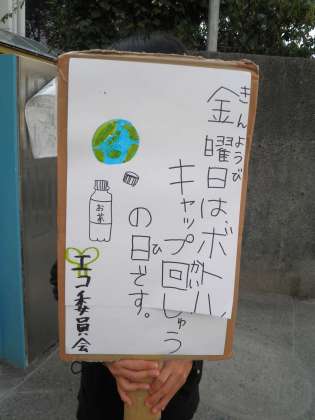 きんようび
金曜日は、ボトル
キャップ回しゅう
かいしゅう
の日です。
ひ
お茶
エコ委員会